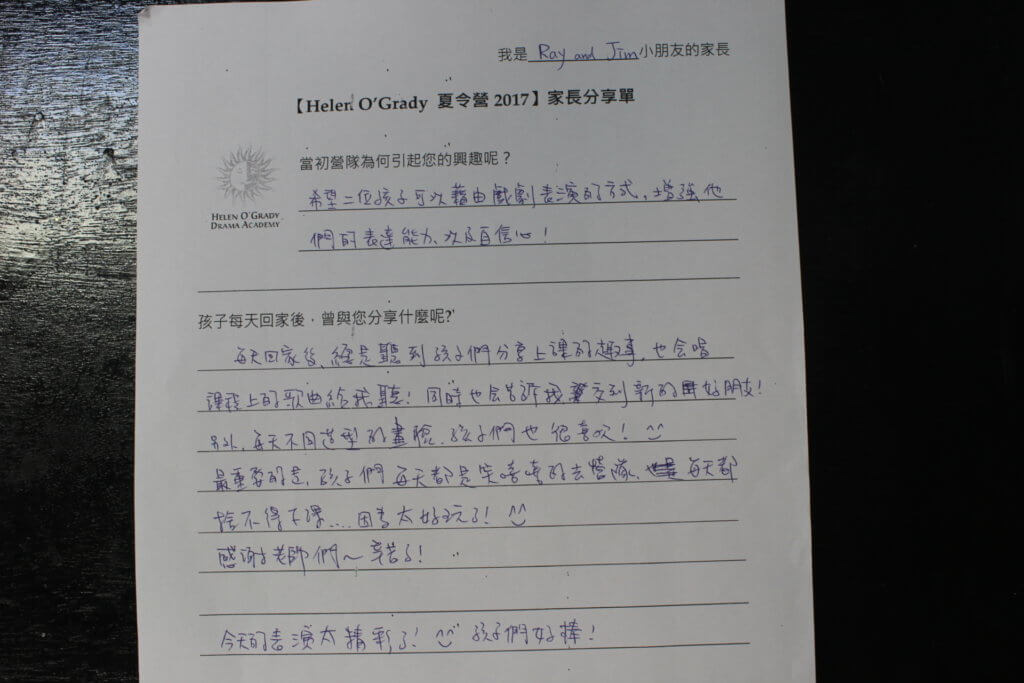 我是 Ray and Jim小朋友的家長
【Helen O'Grady 夏令營 2017】家長分享單
當初營隊為何引起您的興趣呢？
希望二位孩子可以藉由戲劇表演的方式，增強他
們的表達能力、以及自信心！
HELEN O'GRADY
DRAMA ACADEMY
孩子每天回家後，曾與您分享什麼呢?
每天回家後，總是聽到孩子們分享上課的趣事，也會唱
課程上的歌曲給我聽！同時也會告訴我交到新的好朋友！
另外，每天不同造型的畫臉，孩子們也很喜歡！^^
最重要的是，孩子們每天都是笑嘻嘻的去營隊，每天都
捨不得下課....因為太好玩了！^^
感謝老師們～辛苦了！
今天的表演太精彩了！^^ 孩子們好棒！